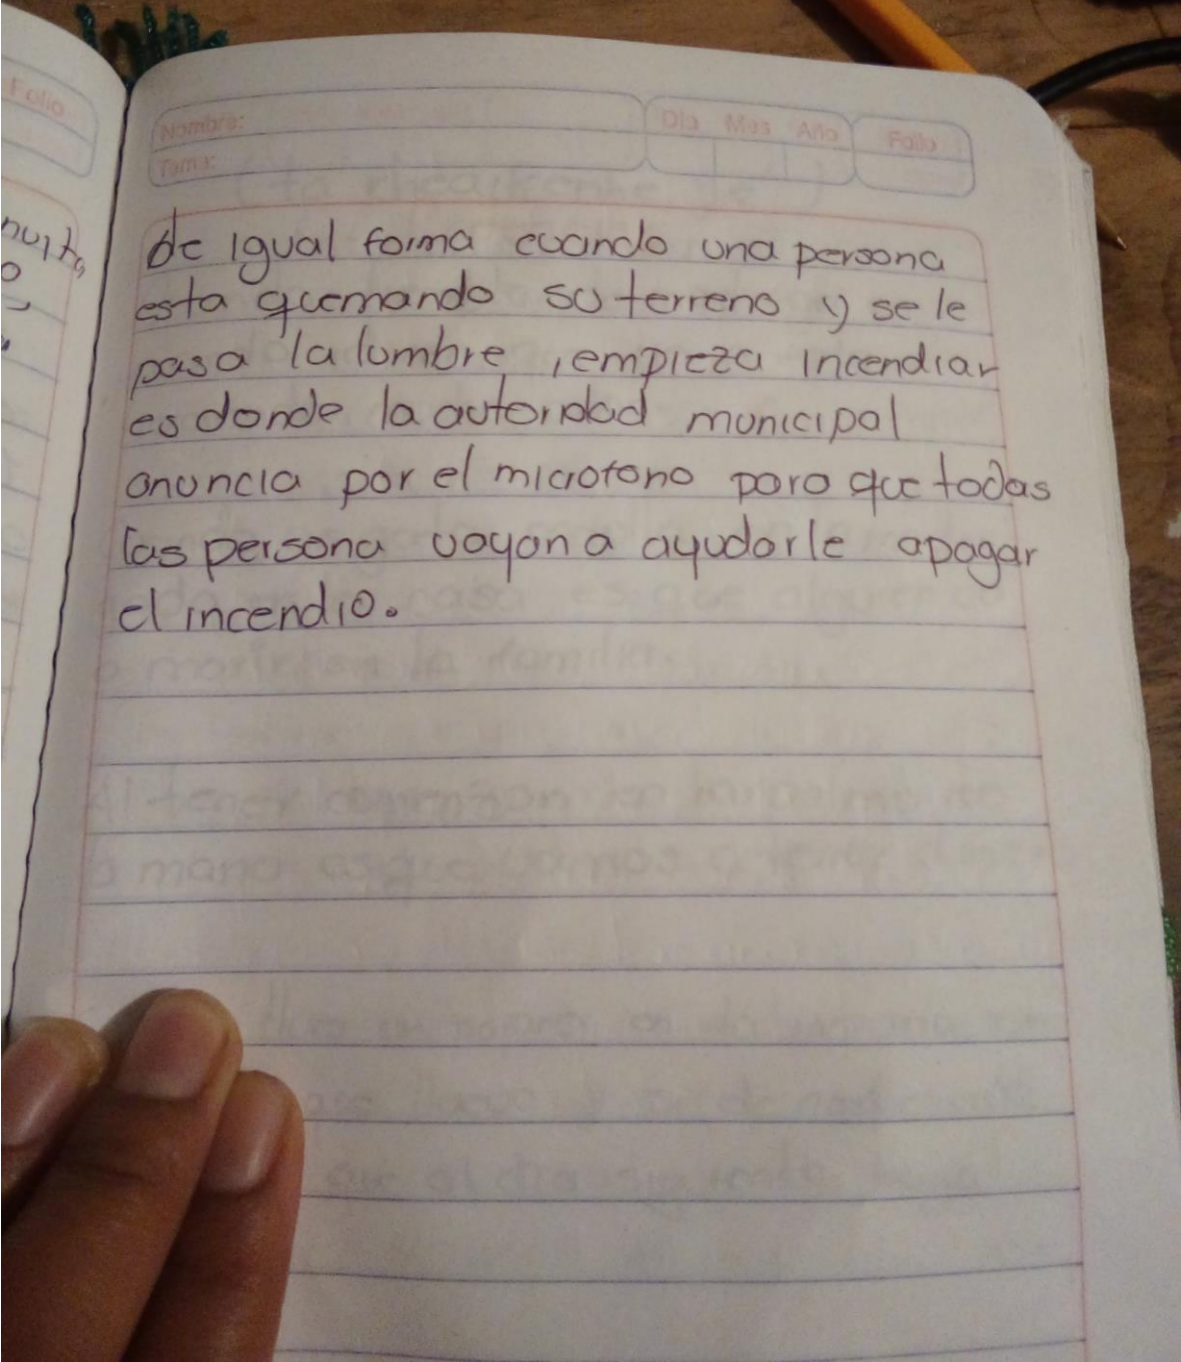 Folio
nuita
o
Nombre:
Tema:
Día Mes Año
Folio
de igual forma cuando una persona
esta quemando su terreno y se le
pasa la lumbre, empieza incendiar
es donde la autoridad municipal
anuncia por el microfono para que todas
las persona vayan a ayudarle apagar
el incendio.